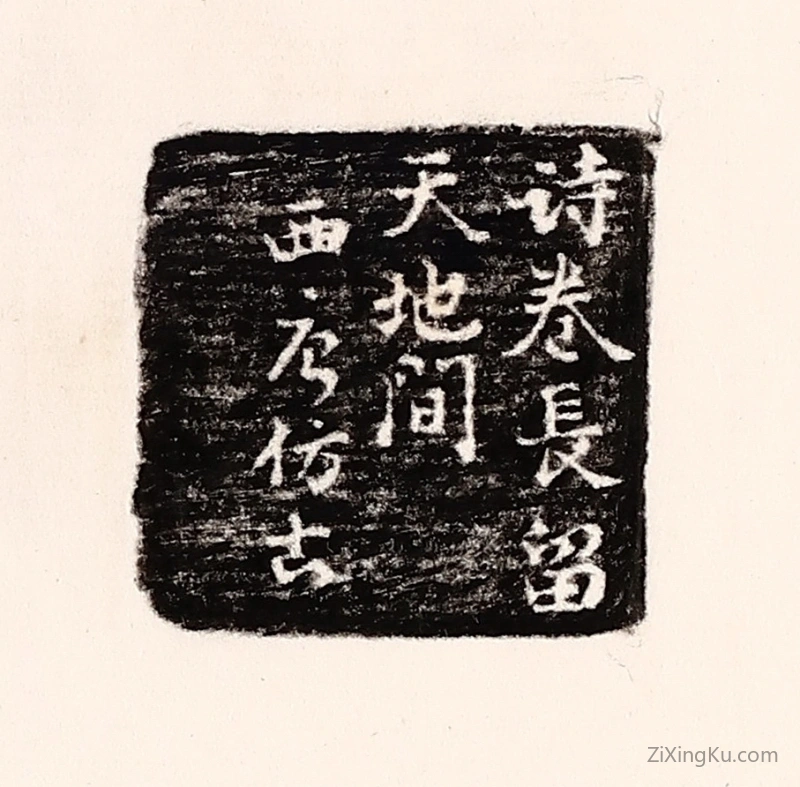 诗卷長留
天地間
西仿古
ZiXingKu.com